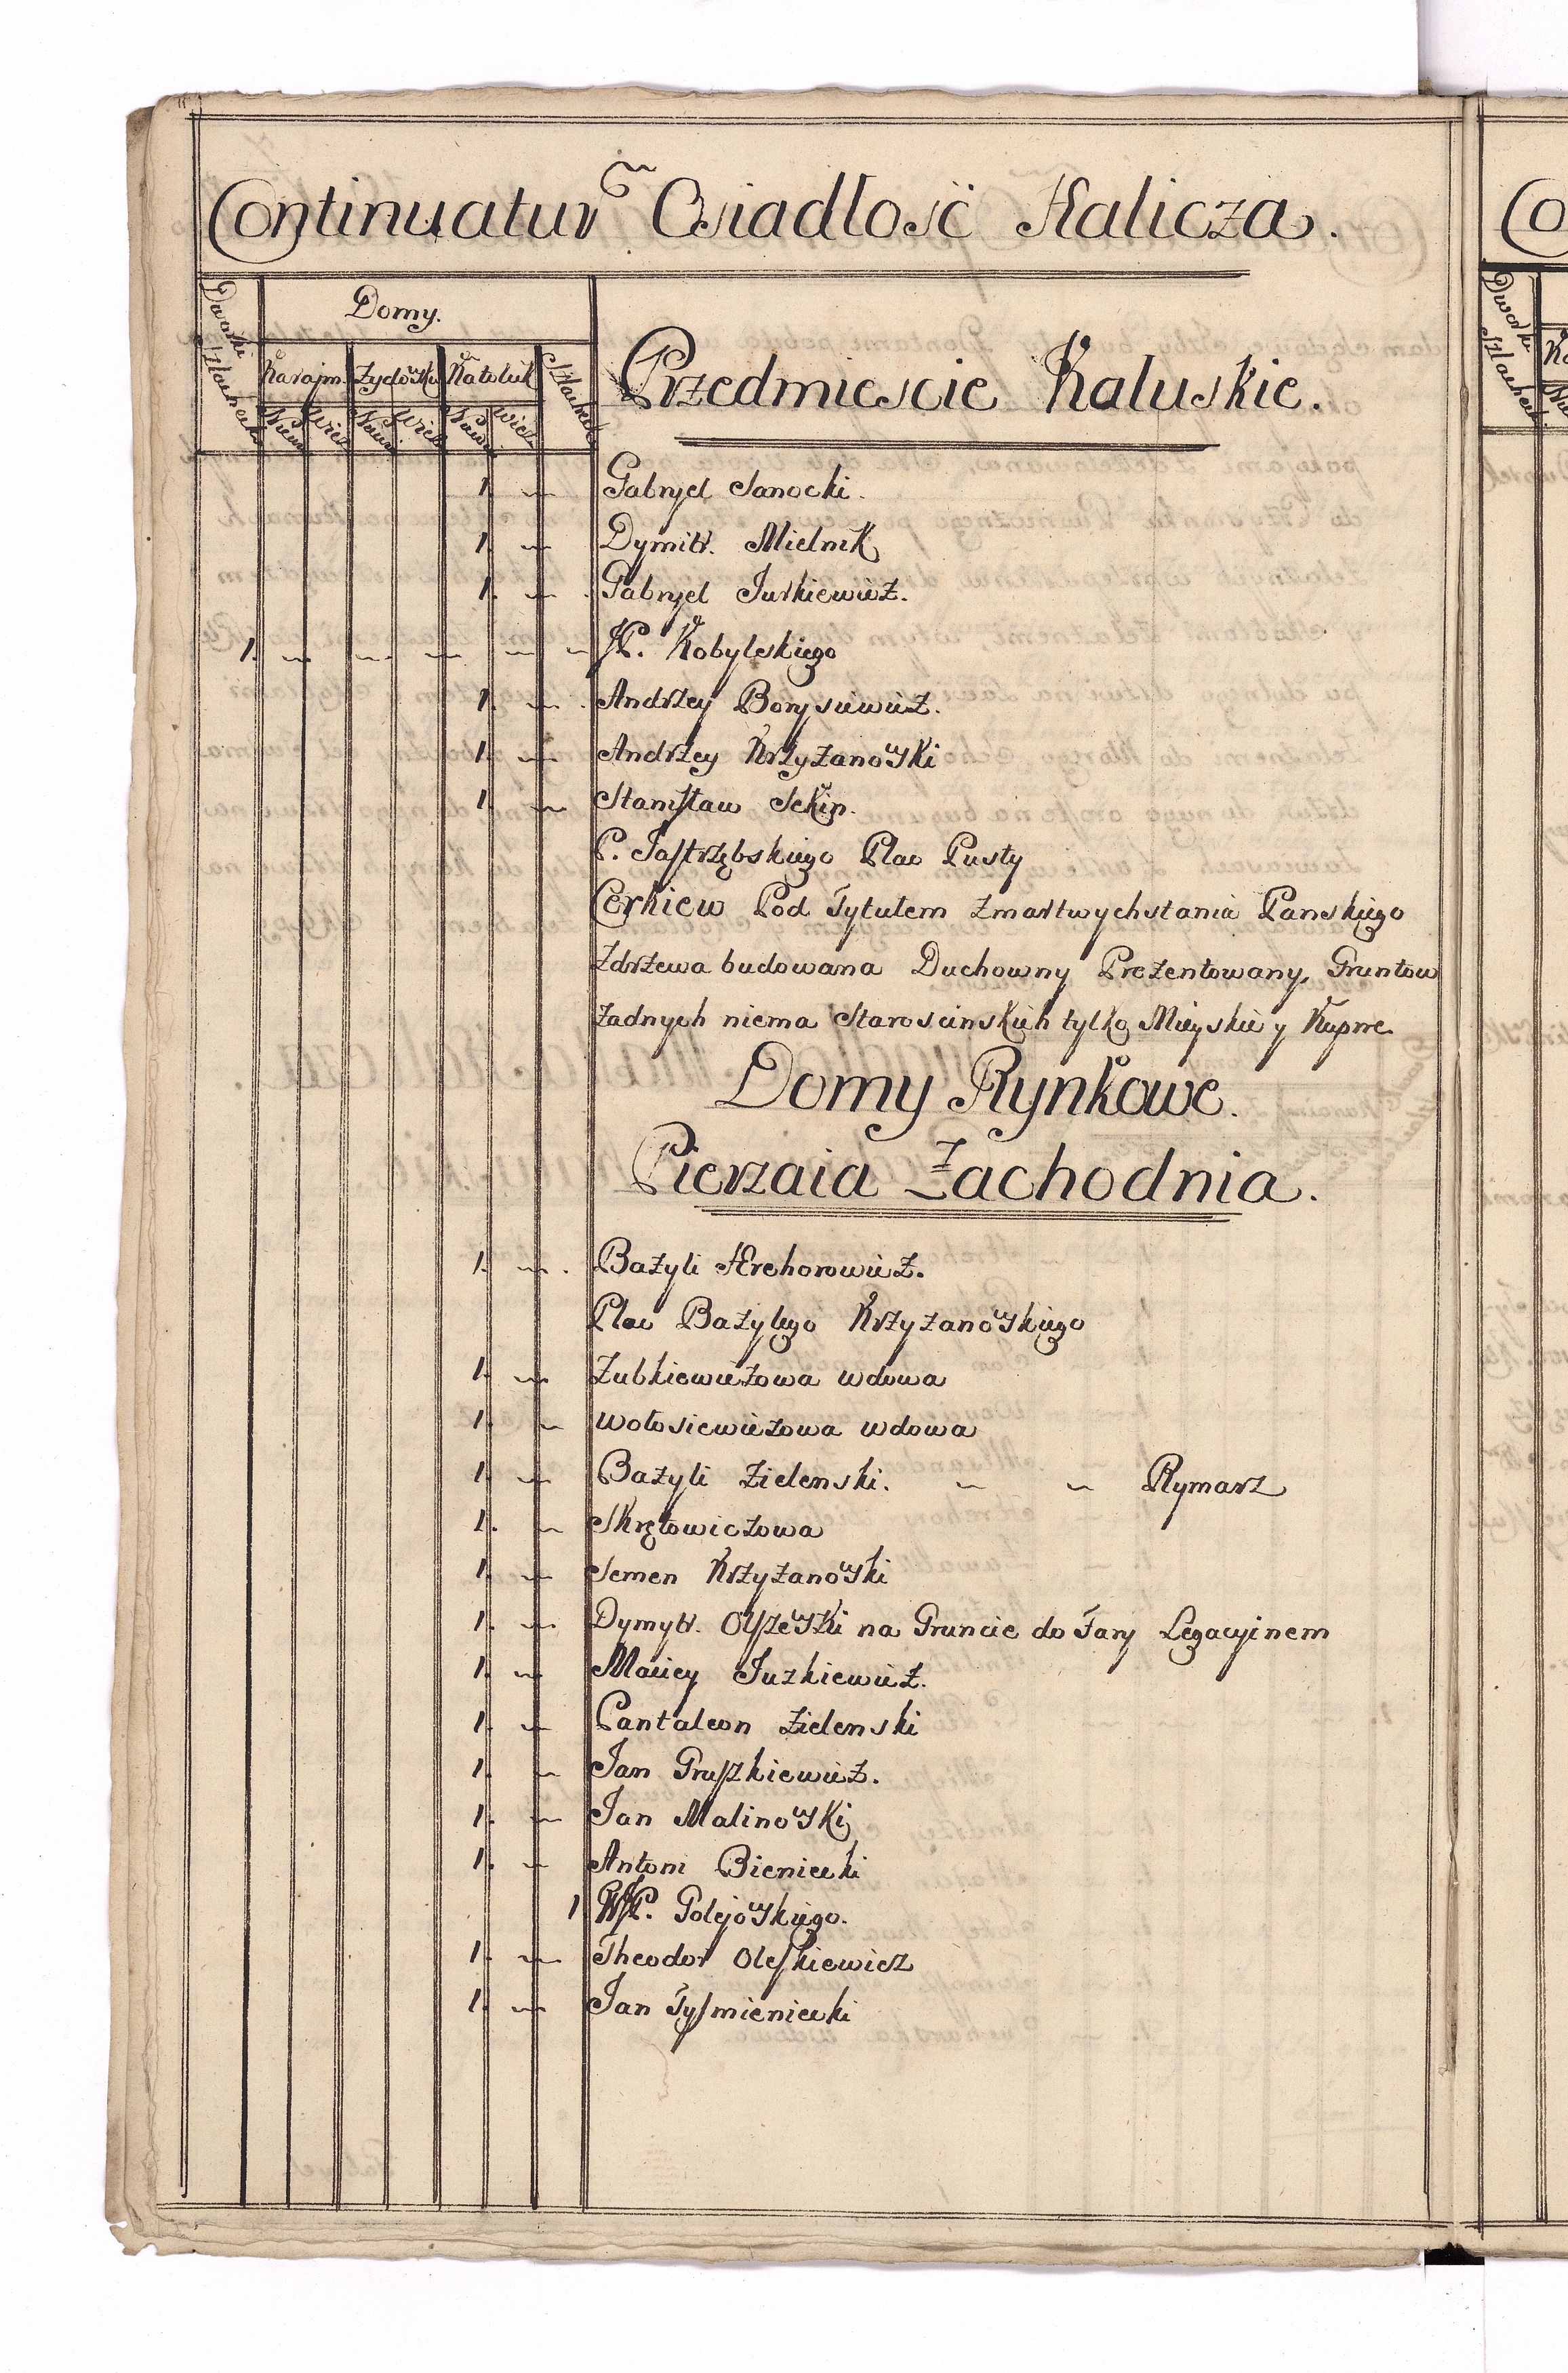 Continuatur Osiadłość Halicza.
Dworki Szlacheckie
Domy.
Karaim. Żydowski Katolick Szlacheckie
Przedmiescie Kaluskie.
1. Gabryel Sanocki.
1. Dymitr. Mielnik
1. Gabryel Jurkiewicz.
1. JP. Kobylskiego
1. Andrzey Borysiewicz.
1. Andrzey Krzyżanowski
1. Stanisław Sekip.
P. Jastrzębskiego Plac Pusty
Cerkiew Pod Tytułem Zmartwychstania Panskiego
Zdrzewa budowana Duchowny Prezentowany, Gruntow
żadnych niema Staroscinskich tylko Mieyskie y Kupne
Domy Rynkowe.
Pierzaia Zachodnia.
1. Bazyli Hrehorowicz.
Plac Bazylego Krzyżanowskiego
1. Zubkiewiczowa wdowa
1. Wołosiewiczowa wdowa
1. Bazyli Zielenski. Rymarz
1. Skrętowiczowa
1. Semen Krzyżanowski
1. Dymytr. Olszewski na Gruncie do Fary Legacyinem
1. Maciey Juzkiewicz.
1. Pantaleon Zielenski
1. Jan Gruszkiewicz.
1. Jan Malinowski
1. Antoni Bieniecki
1 WJP. Golejowskiego.
1. Theodor Oleskiewicz
1. Jan Tysmieniecki